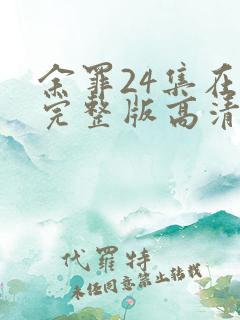 余罪24集在
完整版高清
代罪特
未经同意禁止转载